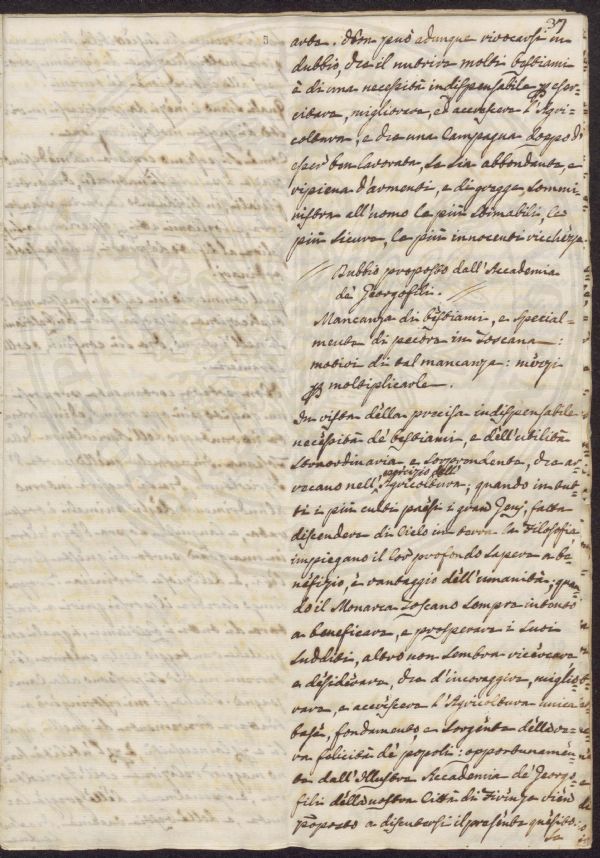 37
arte. Non può adunque rivocarsi in
dubbio, che il nutrire molti bestiami
è di una necessità indispensabile p eser-
citare, migliorare, ed accrescere l'Agri-
coltura, e che una Campagna doppo di
esser ben lavorata, se sia abbondante, e
ripiena d'armenti, e di gregge sommi-
nistra all'uomo le più stimabili, le
più sicure, le più innocenti ricchezze.
// Dubbio proposto dall'Accademia
de' Georgofili. //
Mancanza di bestiami, e special-
mente di pecore in Toscana:
motivi di tal mancanza: mezzi
p moltiplicarle.
In vista della precisa indispensabile
necessità de' bestiami, e dell'utilità
straordinaria e sorprendente, che ar-
recano nell'esercizio dell'Agricoltura; quando in tut-
ti i più culti paesi i gran Genj, fatta
discendere di Cielo in terra la Filosofia
impiegano il lor profondo sapere a be-
nefizio, e vantaggio dell'umanità: quan-
do il Monarca Toscano sempre intento
a beneficare, e prosperare i suoi
sudditi, altro non sembra ricercare
e desiderare, che d'incoraggire, miglio-
rare, e accrescere l'Agricoltura unica
base, fondamento e sorgente della ve-
ra felicità de' popoli: opportunamen-
te dall'Illustre Accademia de' Georgo-
fili della nostra Città di Firenze vien
proposto a discutersi il presente quesito: